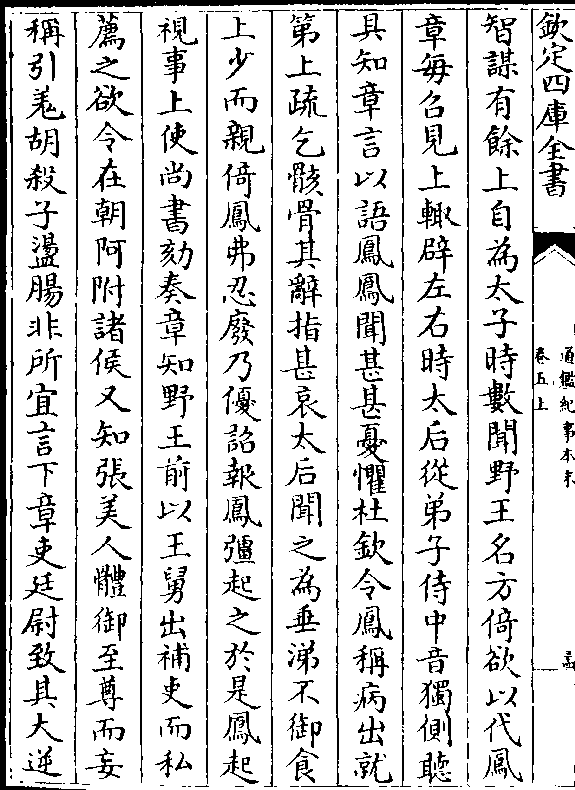 欽定四庫全書
通鑑紀事本末
卷五上
智謀有餘上自為太子時數聞野王名方倚欲以代鳳
章每召見上輒辟左右時太后從弟子侍中音獨側聽
具知章言以語鳳鳳聞甚甚憂懼杜欽令鳳稱病出就
第上疏乞骸骨其辭指甚哀太后聞之為垂涕不御食
上少而親倚鳳弗忍廢乃優詔報鳳彊起之於是鳳起
視事上使尚書劾奏章知野王前以王舅出補吏而私
薦之欲令在朝阿附諸侯又知張美人體御至尊而妄
稱引羌胡殺子盪腸非所宜言下章吏廷尉致其大逆